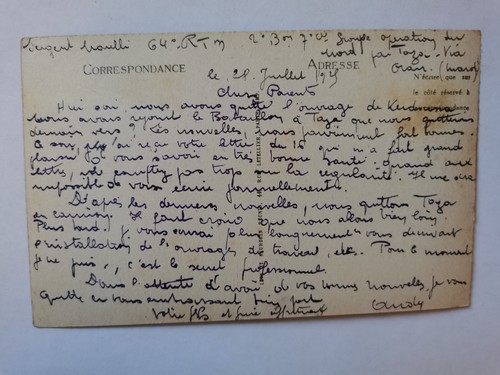 Sergent 64e RTM 2e Bon 7e Cie Groupe opération du
nord par Taza. Via
CORRESPONDANCE ADRESSE Oran. (Maroc)
le 28 Juillet 1925 N'écrire que sur
le côté réservé à
Chers Parents
Hier soir, nous avons quitté l'ouvrage de
nous avons rejoint le Bataillon à Taza que nous quittons
demain vers ? Les nouvelles, nous parviennent fort bonnes.
Ce soir, j'ai reçu votre lettre du 15 qui m'a fait grand
plaisir de vous savoir en très bonne santé. Quand aux
lettres, ne comptez pas trop sur la régularité. Il me sera
impossible de vous écrire journellement.
D'après les dernières nouvelles, nous quittons Taza
en camion. Il faut croire que nous allons bien loin.
Plus tard, je vous écrirai plus longuement vous
l'installation de l'ouvrage, du travail, etc. Pour le moment
je ne puis, c'est le secret professionnel.
Dans l'attente d'avoir de vos bonnes nouvelles, je vous
quitte en vous embrassant bien fort
Votre fils et frère affectueux